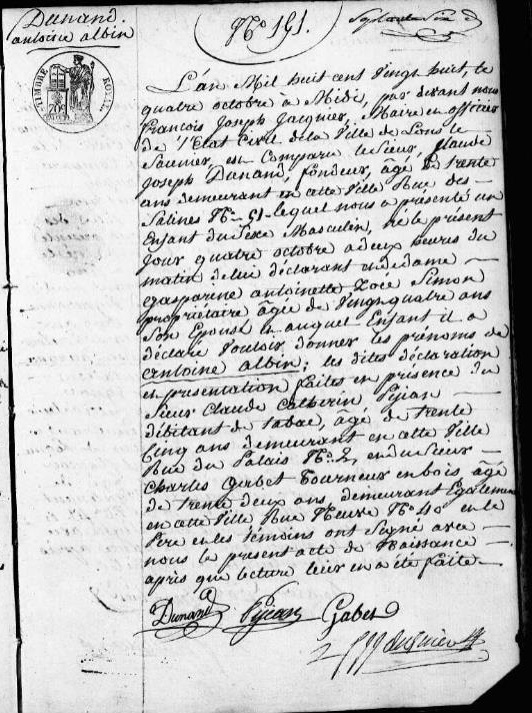 Dunand.
antoine albin
No 151.
TIMBRE ROYAL
L'an Mil huit cent Vingt huit, le
quatre octobre à Midi, par devant nous
François Joseph Jacquier, Maire en officier
de l'Etat Civil de la Ville de Lons le
Saunier, est Comparu le Sieur, Claude
Joseph Dunand, fondeur, âgé de trente
ans demeurant en cette Ville Rue des
Salines No 51 lequel nous a présenté un
Enfant du Sexe Masculin, né le présent
Jour quatre octobre à deux heures du
matin de lui déclarant en de dame
gasparine antoinette Zoée Simon
propriétaire âgée de Vingt quatre ans
Son Epouse en auquel Enfant il a
déclaré Vouloir donner les prénoms de
antoine albin; les dites déclaration
en présentation faites en présence du
Sieur Claude Catherin Pyéan
débitant de tabac, âgé de trente
Cinq ans demeurant en cette Ville
Rue du Palais No 2 en du Sieur
Charles Gerbet Tourneur en bois âgé
de trente deux ans, demeurant Egalement
en cette Ville Rue Neuve No 40 en le
Père en les témoins ont Signé avec
nous le présent acte de Naissance
après que lecture leur en a été faite.
Dunand Pyéan Gabet